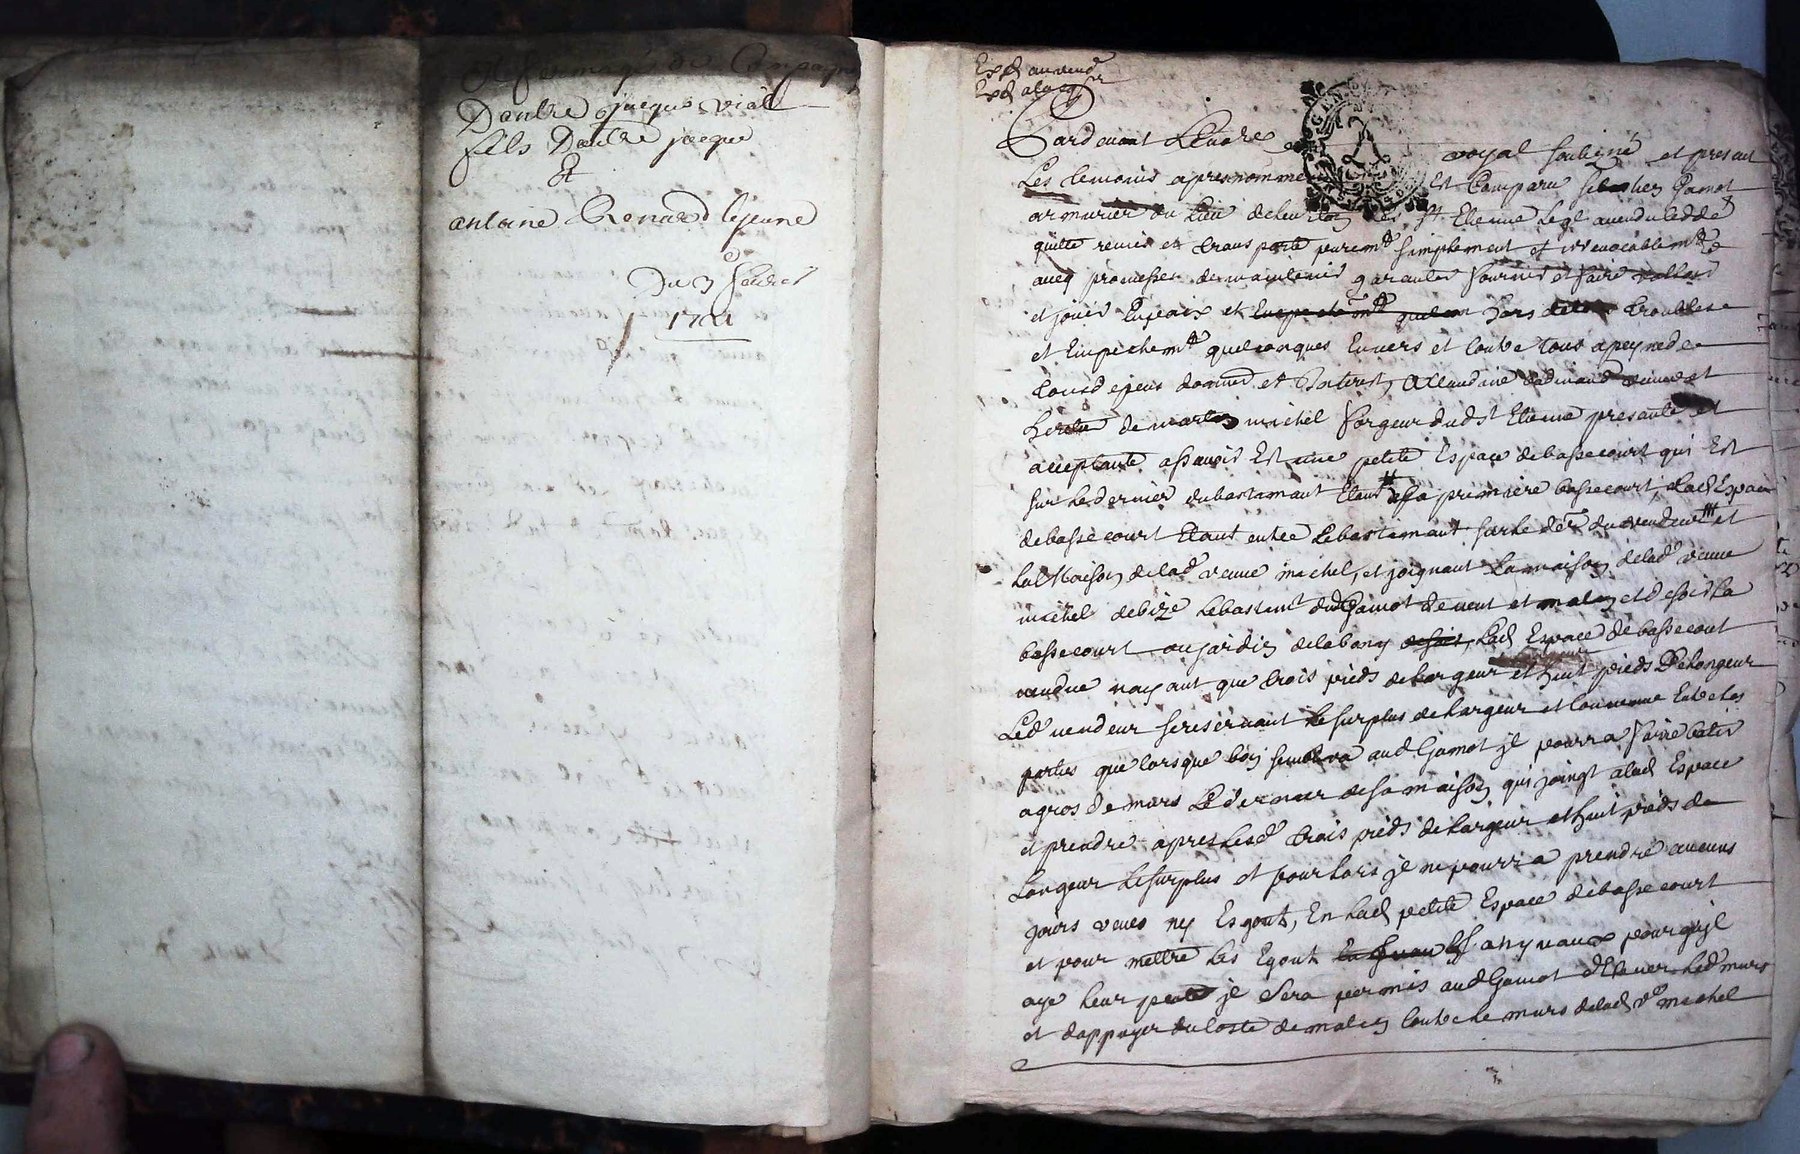 Affermage de Compagny
D'autre jacque vial
fils D'autre jacque
Et
antoine Renard lejeune
Du 3 feuvrier
1721
Exp.d au vend.r
Exp.d alacq.r
Pardevant Le no.re royal soubsigné et presant
Les temoins apres nommes Est Comparu sebastien Gamot
armurier du Lieu de St Etienne Leq.l a vendu cedde
quitte remis et transporte purem.t simplement et irrevocablem.t
avec promesse de maintenir garantir fournir et faire valloir
et jouir En paix et hors de troubles
et Empechem.t quelconques Envers et contre tous a peyne de
tous depens domm.s et Interest, a Claudine veuve et
heritiere de martin michel forgeur dud St Etienne presante et
acceptante assavoir Est une petite Espace de basse court qui Est
sur le dernier du bastimant Etant # a sa premiere basse court, lad Espace
de basse court Etant entre Le bastimant sur le der.r du vendeur et
La Maison de lad.e veuve michel, et joignant La maison de lad.e veuve
michel de bize Le bastim.t dud Gamot de vent et matin et de soir la
basse court au jardin de Lad Espace de basse court
vendue nayant que trois pieds de largeur et huit pieds de longeur
Led.t vendeur se reservant le surplus de largeur et convenu Entre les
parties que lorsque bon semblera aud Gamot jl pourra faire batir
a gros de murs Le dernier de sa maison qui joingt a lad Espace
et prendre apres lesd.s trois pieds de largeur et huit pieds de
Longeur Le surplus et pour lors jl ne pourra prendre aucuns
jours veues ny Esgout, En lad petite Espace de basse court
et pour mettre les Egout anynaux pour qujl
aye leur pente jl sera permis aud Gamot d'Elever led.t murs
et dappuyer du coste de matin contre le murs de lad v.e michel